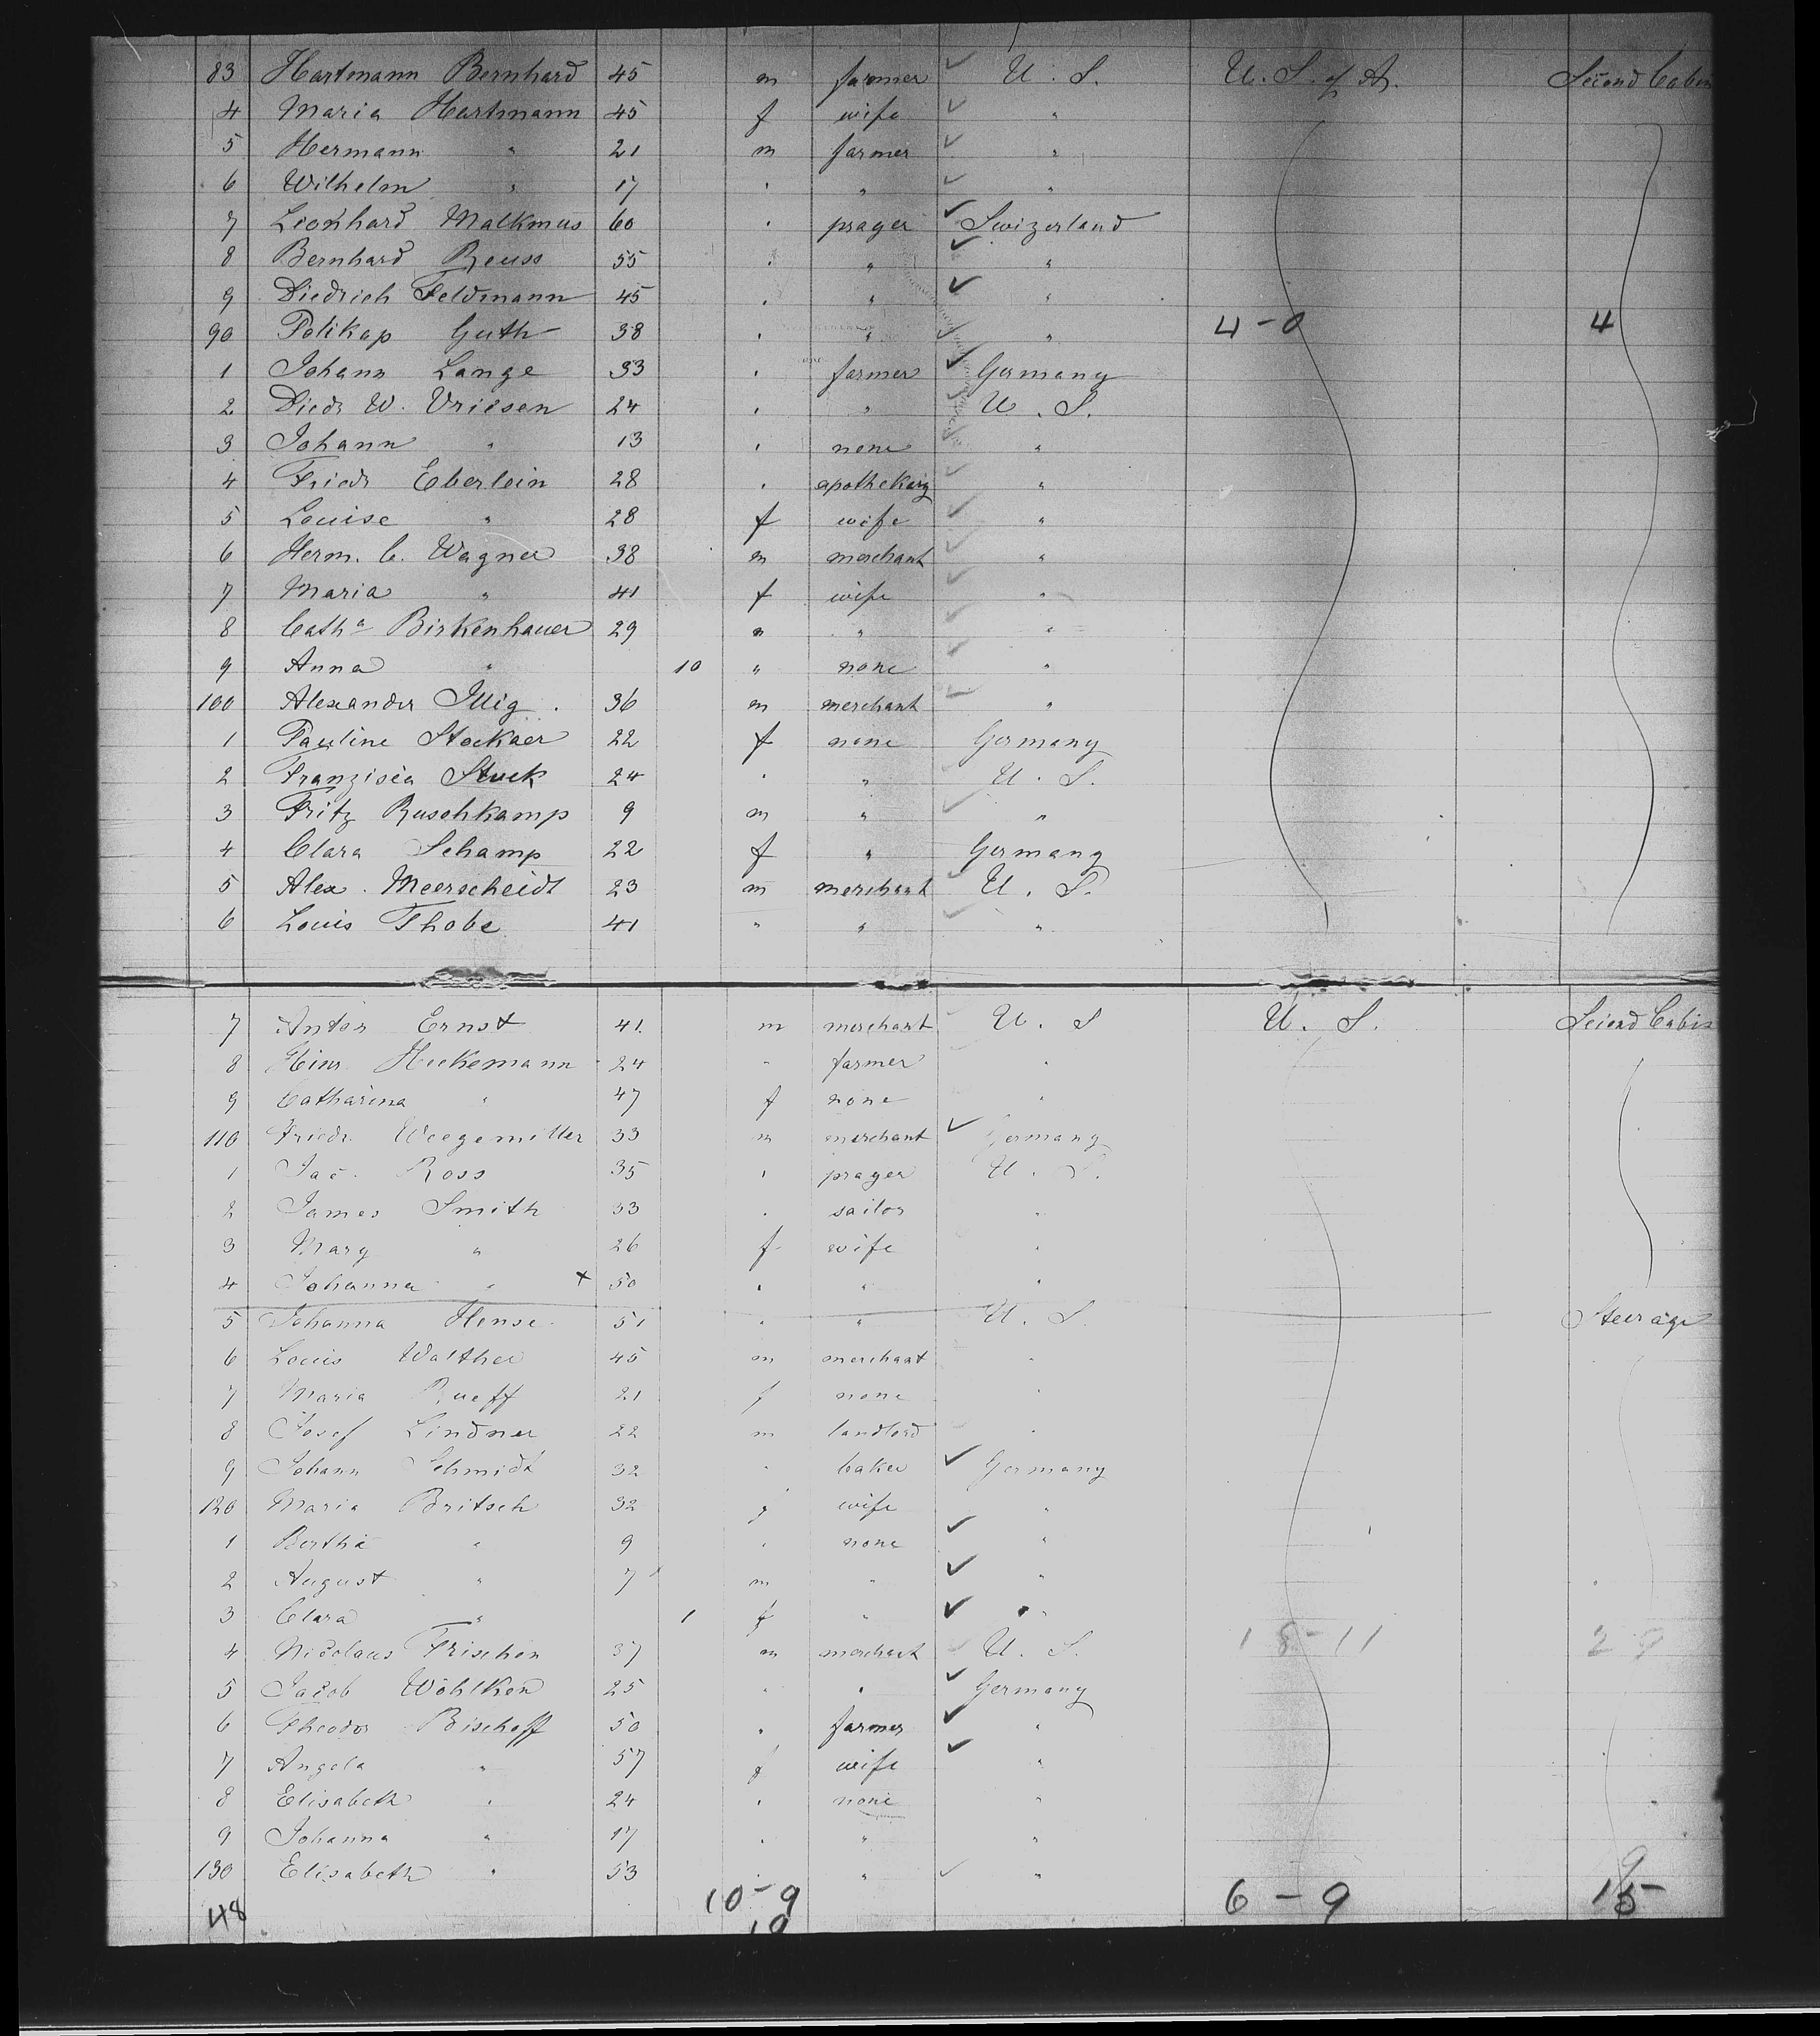 83 Hartmann Bernhard 45 m farmer ✓ U. S. U. S. of A. Second Cabin
4 Maria Hartmann 45 f wife ✓ "
5 Hermann " 21 m farmer ✓ "
6 Wilhelm " 17 " " ✓ "
7 Leonhard Malkmus 60 " prager ✓ Swizerland
8 Bernhard Reuss 55 " " ✓ "
9 Diedrich Feldmann 45 " " ✓ "
90 Polikap Guth 38 " " ✓ " 4-0 4
1 Johann Lange 33 " farmer ✓ Germany
2 Diedr W. Vriesen 24 " " ✓ U. S.
3 Johann " 13 " none ✓ "
4 Friedr Eberlein 28 " apothekarg ✓ "
5 Louise " 28 f wife ✓ "
6 Herm. C. Wagner 38 m merchant ✓ "
7 Maria " 41 f wife ✓ "
8 Catha Birkenhauer 29 " " ✓ "
9 Anna " 10 " none ✓ "
100 Alexander Illig 36 m merchant ✓ "
1 Pauline Stockaer 22 f none Germany
2 Franzisca Stuck 24 " " ✓ U. S.
3 Fritz Ruschkamp 9 m " ✓ "
4 Clara Schamp 22 f " Germany
5 Alex. Meerscheidt 23 m merchant ✓ U. S.
6 Louis Thobe 41 " " ✓ "
7 Anton Ernst 41 m merchant U. S U. S. Second Cabin
8 Hinr. Huckemann 24 " farmer "
9 Catharina " 47 f none "
110 Friedr. Weegemiller 33 m merchant ✓ Germany
1 Jac. Ross 35 " prager U. S.
2 James Smith 33 " sailor "
3 Mary " 26 f wife "
4 Johanna " x 50 " " "
5 Johanna Hense 51 " " U. S. Steerage
6 Louis Walther 45 m merchant "
7 Maria Rueff 21 f none "
8 Josef Lindner 22 m landlord "
9 Johann Schmidt 32 " baker ✓ Germany
120 Maria Britsch 32 f wife "
1 Bertha " 9 " none ✓ "
2 August " 7 m " ✓ "
3 Clara " 1 f " ✓ "
4 Nicolaus Frischen 37 m merchant U. S. 18-11
5 Jacob Wohlken 25 " " ✓ Germany
6 Theodor Bischoff 50 " farmer ✓ "
7 Angela " 57 f wife ✓ "
8 Elisabeth " 24 " none "
9 Johanna " 17 " " "
130 Elisabeth " 53 " " ✓ " 9
48 10-9 6-9 15
19